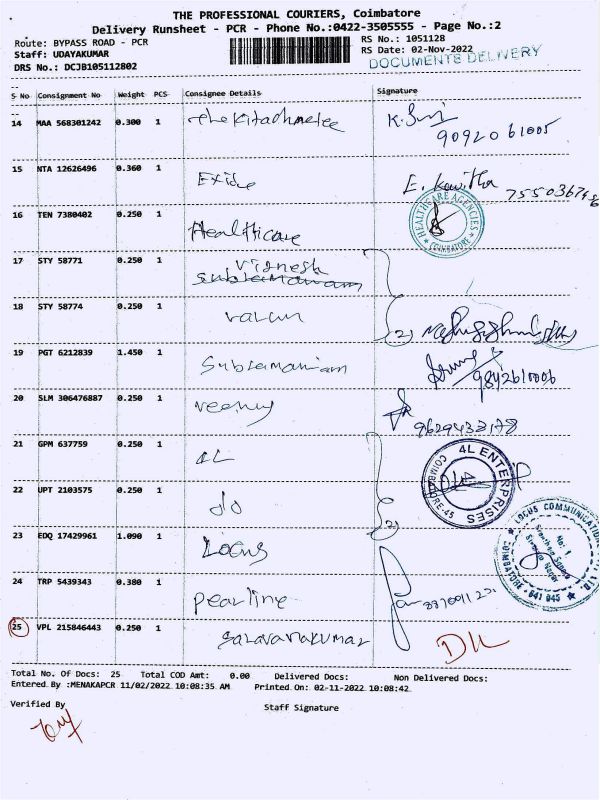 THE PROFESSIONAL COURIERS, Coimbatore
Delivery Runsheet - PCR - Phone No.:0422-3505555 - Page No.:2
Route: BYPASS ROAD - PCR
RS No.: 1051128
Staff: UDAYAKUMAR
RS Date: 02-Nov-2022
DOCUMENTS DELIVERY
DRS No.: DCJB105112802
S No Consignment No Weight PCS Consignee Details Signature
14 MAA 568301242 0.300 1
9092061005
15 NTA 12626496 0.360 1 Exide E. Kavitha
16 TEN 7380402 0.250 1 Healthcare HEALTHCARE AGENCIES COIMBATORE
17 STY 58771 0.250 1 Vignesh
18 STY 58774 0.250 1 varun 2)
19 PGT 6212839 1.450 1 Subramaniam 9842610006
20 SLM 306476887 0.250 1
9629433178
21 GPM 637759 0.250 1 4L 4L ENTERPRISES
22 UPT 2103575 0.250 1 do 2)
23 EDQ 17429961 1.090 1 Locus LOCUS COMMUNICATION
24 TRP 5439343 0.380 1 pearline
25 VPL 215846443 0.250 1 Saravanakumar
Total No. Of Docs: 25 Total COD Amt: 0.00 Delivered Docs: Non Delivered Docs:
Entered By :MENAKAPCR 11/02/2022 10:08:35 AM Printed On: 02-11-2022 10:08:42
Verified By Staff Signature